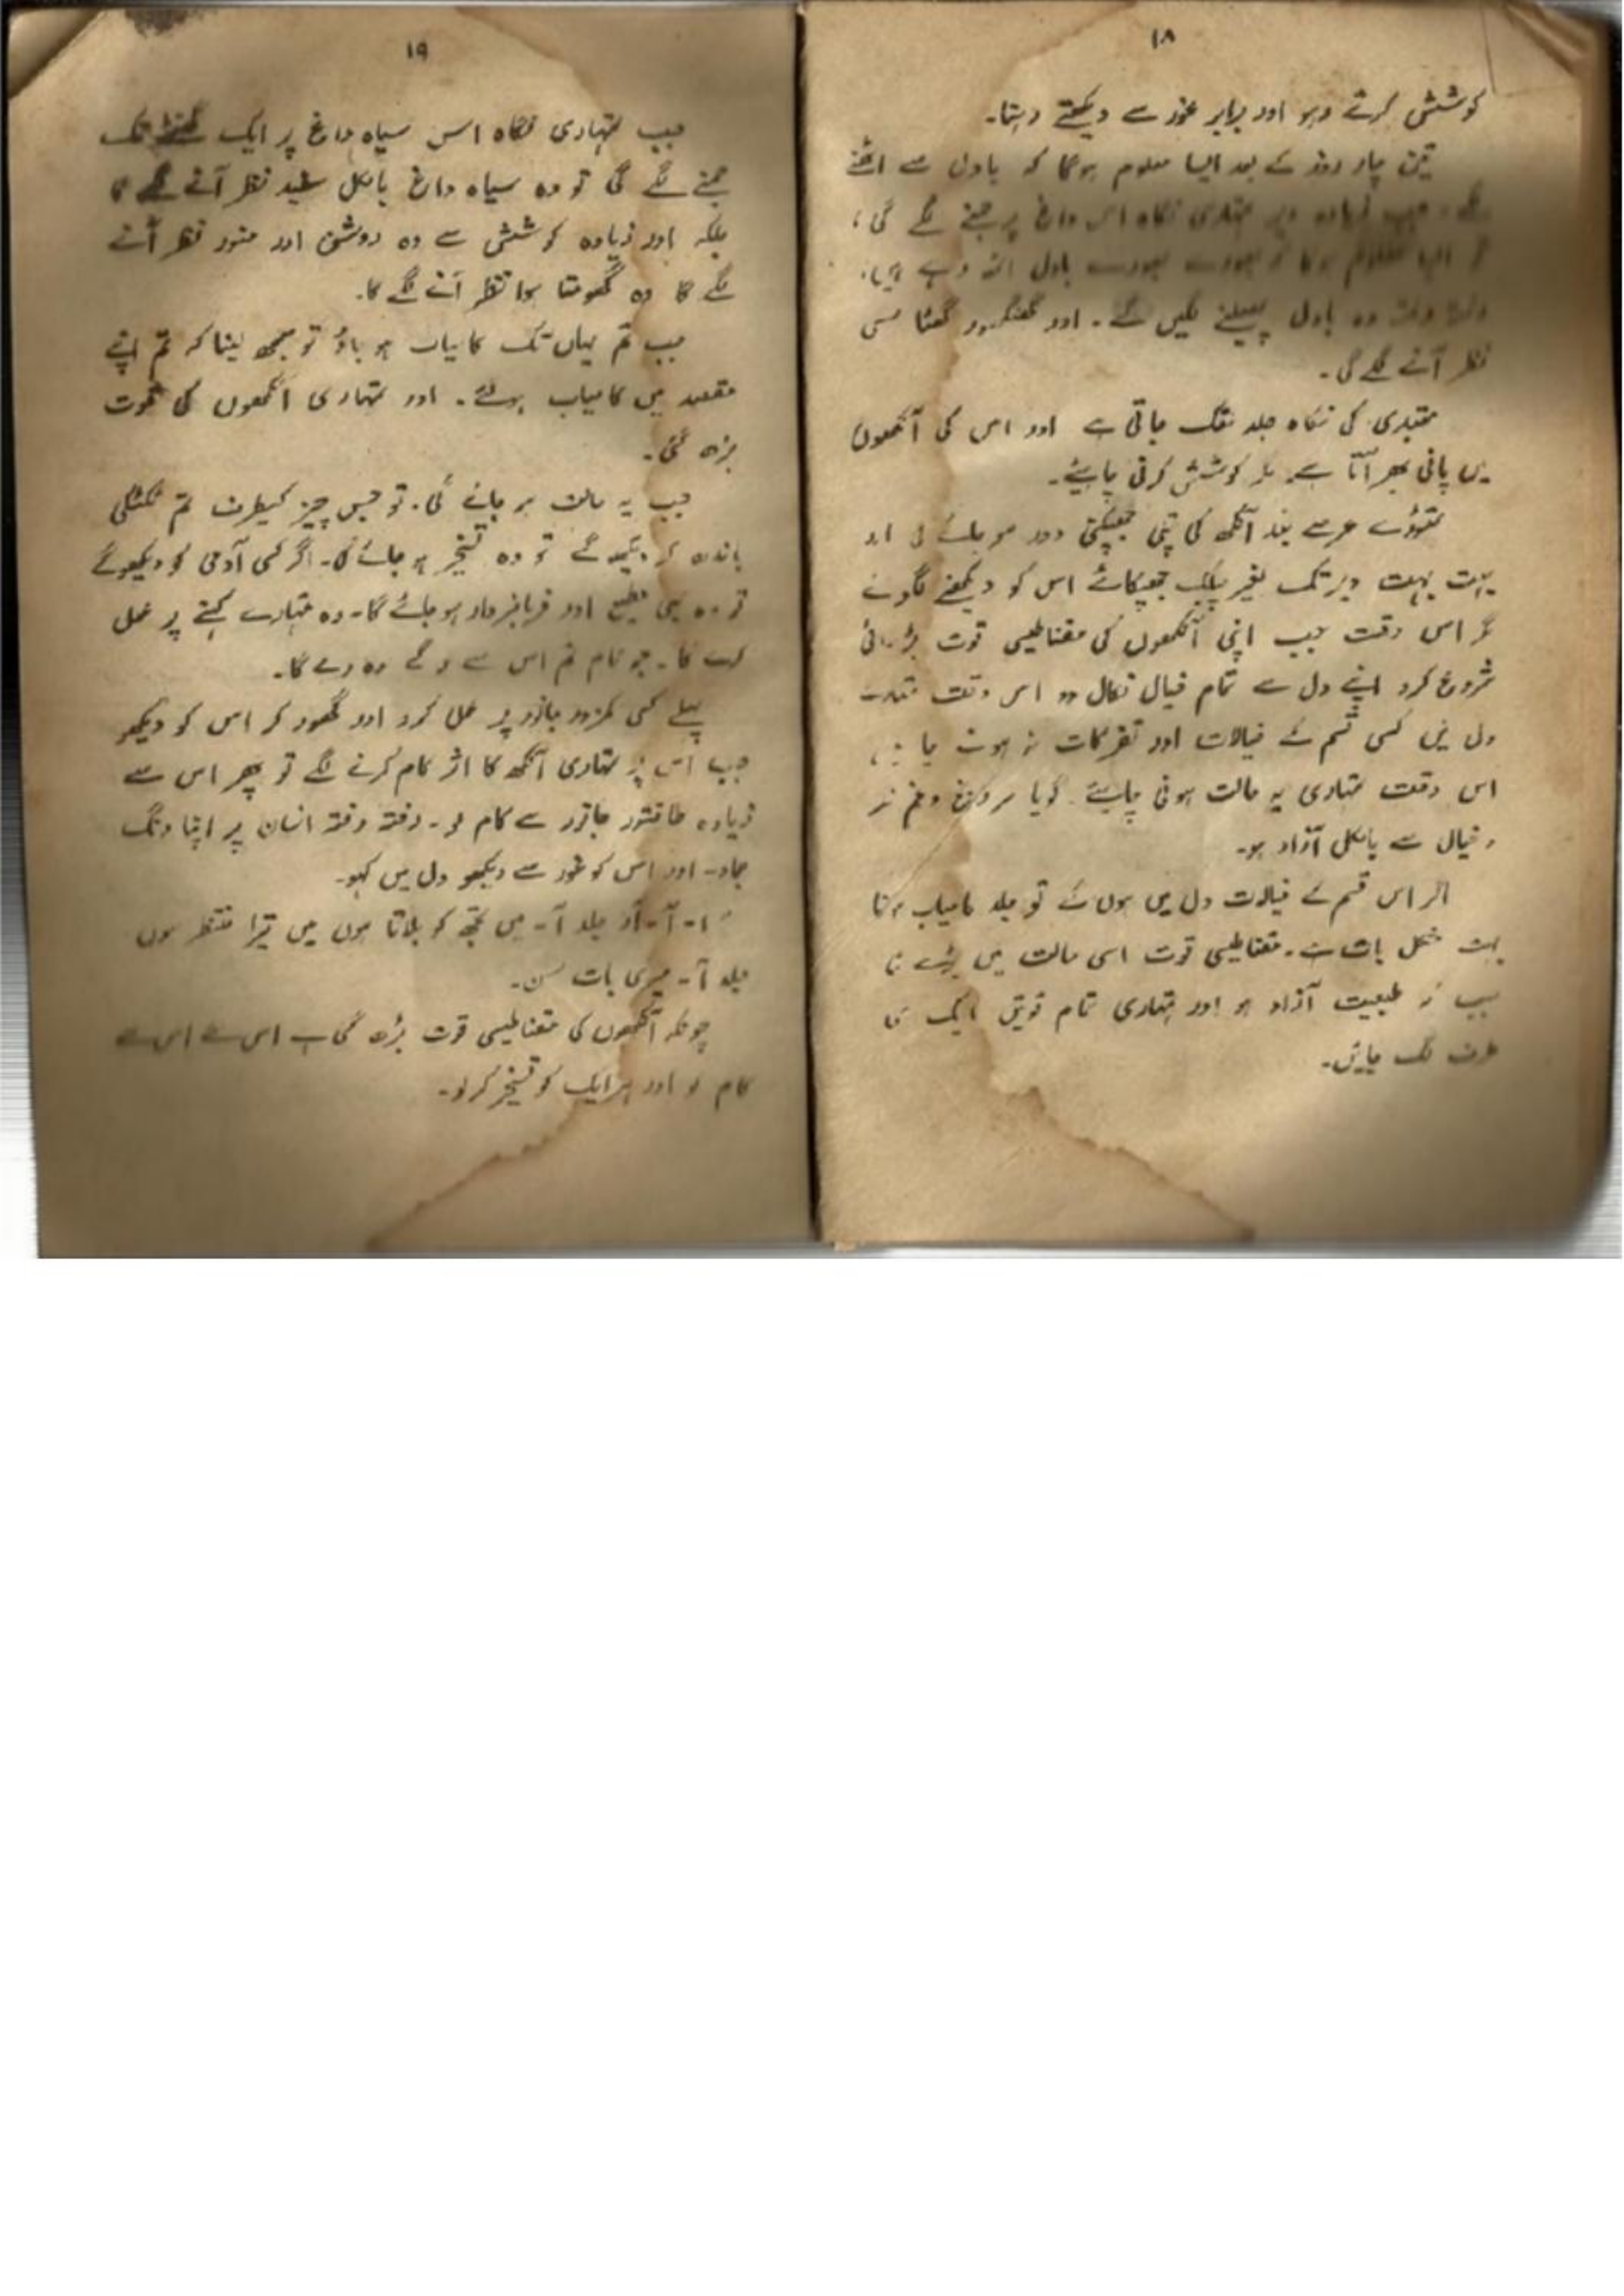 ۱۸
کوشش کرتے رہو اور برابر غور سے دیکھتے رہنا۔
تین چار روز کے بعد ایسا معلوم ہوگا کہ بادل سے اٹھنے
جب زیادہ دیر تمہاری نگاہ اس داغ پر جمنے لگے گی،
تو ایسا معلوم ہوگا کہ بھورے بھورے بادل اٹھ رہے ہیں۔
رفتہ رفتہ وہ بادل پھیلنے لگیں گے۔ اور گھنگھور گھٹا سی
نظر آنے لگے گی۔
مبتدی کی نگاہ جلد تھک جاتی ہے اور اس کی آنکھوں
میں پانی بھر آتا ہے۔ مگر کوشش کرنی چاہیئے۔
تھوڑے عرصے بعد آنکھ کی پتلی جھپکنی دور ہو جائے گی اور
بہت بہت دیر تک بغیر پلک جھپکائے اس کو دیکھنے لگو گے
مگر اس وقت جب اپنی آنکھوں کی مقناطیسی قوت بڑہانی
شروع کرو اپنے دل سے تمام خیال نکال دو اس وقت تمہارے
دل میں کسی قسم کے خیالات اور تفرکات نہ ہونے چاہئیں
اس وقت تمہاری یہ حالت ہونی چاہیئے۔ گویا ہر رنج و غم اور
خیال سے بالکل آزاد ہو۔
اگر اس قسم کے خیالات دل میں ہوں گے تو جلد کامیاب ہونا
بہت مشکل بات ہے۔ مقناطیسی قوت اسی حالت میں بڑہے گی
جب کہ طبیعت آزاد ہو اور تمہاری تمام قوتیں ایک ہی
طرف لگ جائیں۔
۱۹
جب تمہاری نگاہ اس سیاہ داغ پر ایک گھنٹے تک
جمنے لگے گی تو وہ سیاہ داغ بالکل سفید نظر آنے لگے گا
بلکہ اور زیادہ کوشش سے وہ روشن اور منور نظر آنے
لگے گا وہ گھومتا ہوا نظر آنے لگے گا۔
جب تم یہاں تک کامیاب ہو جاؤ تو سمجھ لینا کہ تم اپنے
مقصد میں کامیاب ہوئے۔ اور تمہاری آنکھوں کی قوت
بڑھ گئی۔
جب یہ حالت ہو جائے گی۔ تو جس چیز کیطرف تم ٹکٹکی
باندھ کر دیکھو گے تو وہ تسخیر ہو جائے گی۔ اگر کسی آدمی کو دیکھو گے
تو وہ بھی مطیع اور فرمانبردار ہو جائے گا۔ وہ تمہارے کہنے پر عمل
کرے گا۔ جو کام تم اس سے لو گے وہ دے گا۔
پہلے کسی کمزور جانور پر عمل کرو اور گھور کر اس کو دیکھو
جب اس پر تمہاری آنکھ کا اثر کام کرنے لگے تو پھر اس سے
زیادہ طاقتور جانور سے کام لو۔ رفتہ رفتہ انسان پر اپنا رنگ
جماؤ۔ اور اس کو غور سے دیکھو دل میں کہو۔
آ۔ آ۔ آؤ جلد آ۔ میں تجھ کو بلاتا ہوں میں تیرا منتظر ہوں
جلد آ۔ میری بات سن۔
چونکہ آنکھوں کی مقناطیسی قوت بڑھ گئی ہے اس لئے اس سے
کام لو اور ہر ایک کو تسخیر کر لو۔